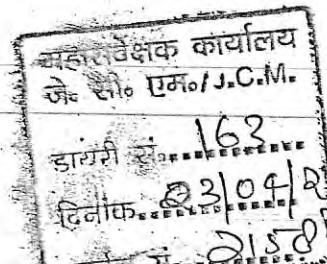 महासर्वेक्षक कार्यालय
जे० सी० एम०/J.C.M.
डायरी सं. 163
दिनांक 23/04/2
सं.